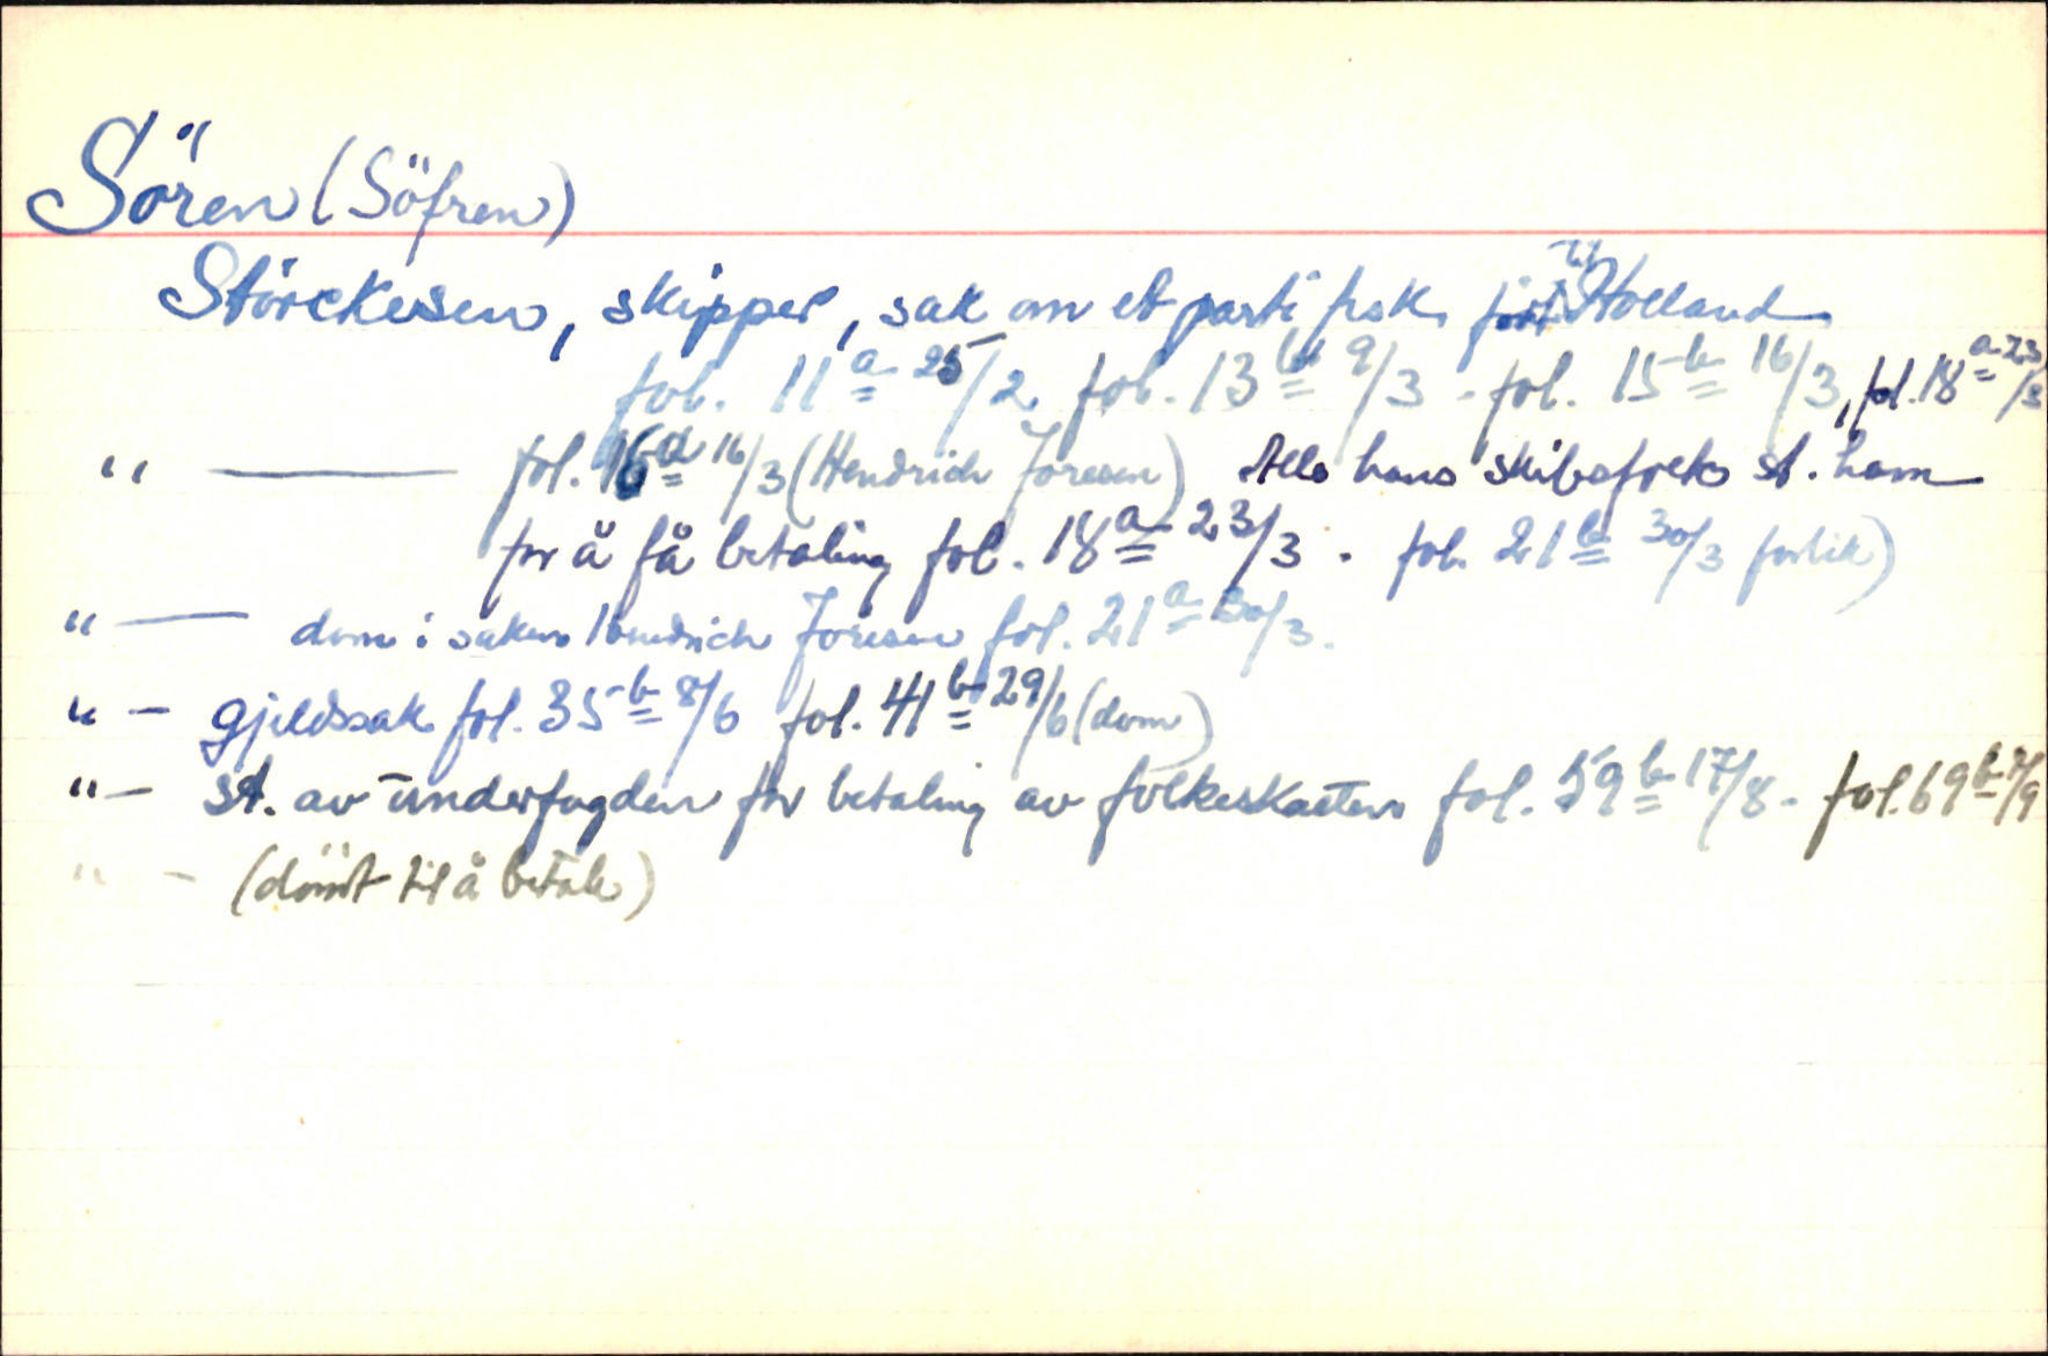 Sören (Söfren)
Störckersen, skipper, sak om et parti fisk ført til Holland
fol. 11a 25/2 fol. 13b 9/3 - fol. 15b 16/3, fol. 18a 23/3
" — fol. 16a 16/3 (Hendrich Joresen) Alle hans skibsfolk st. ham
for å få betaling fol. 18a 23/3 . fol. 21b 30/3 forlik)
" — dom i saken Hendrich Joresen fol. 21a 30/3.
" - gjeldssak fol. 35b 8/6 fol. 41b 29/6 (dom)
" - st. av underfogden for betaling av folkeskatten fol. 59b 17/8 - fol. 69b 7/9
" - (dömt til å betale)